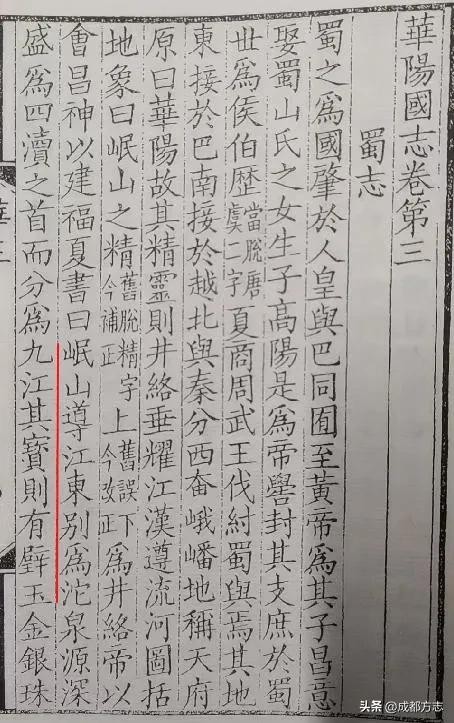 華陽國志卷第三
蜀志
蜀之爲國肇於人皇與巴同囿至黃帝爲其子昌意
娶蜀山氏之女生子高陽是爲帝嚳封其支庶於蜀
世爲侯伯歴當脫唐虞二字夏商周武王伐紂蜀與焉其地
東接於巴南接於越北與秦分西奄峨嶓地稱天府
原曰華陽故其精靈則井絡垂耀江漢遵流河圖括
地象曰岷山之精舊脫精字今補正上舊誤下今改正爲井絡帝以
會昌神以建福夏書曰岷山導江東别爲沱泉源深
盛爲四瀆之首而分爲九江其寶則有璧玉金銀珠
头条 @成都方志